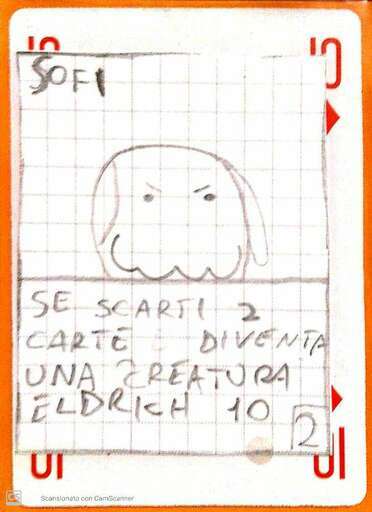 10
10
SOFI
SE SCARTI 2
CARTE DIVENTA
UNA CREATURA
ELDRICH 10
2
10
10
CS Scansionato con CamScanner